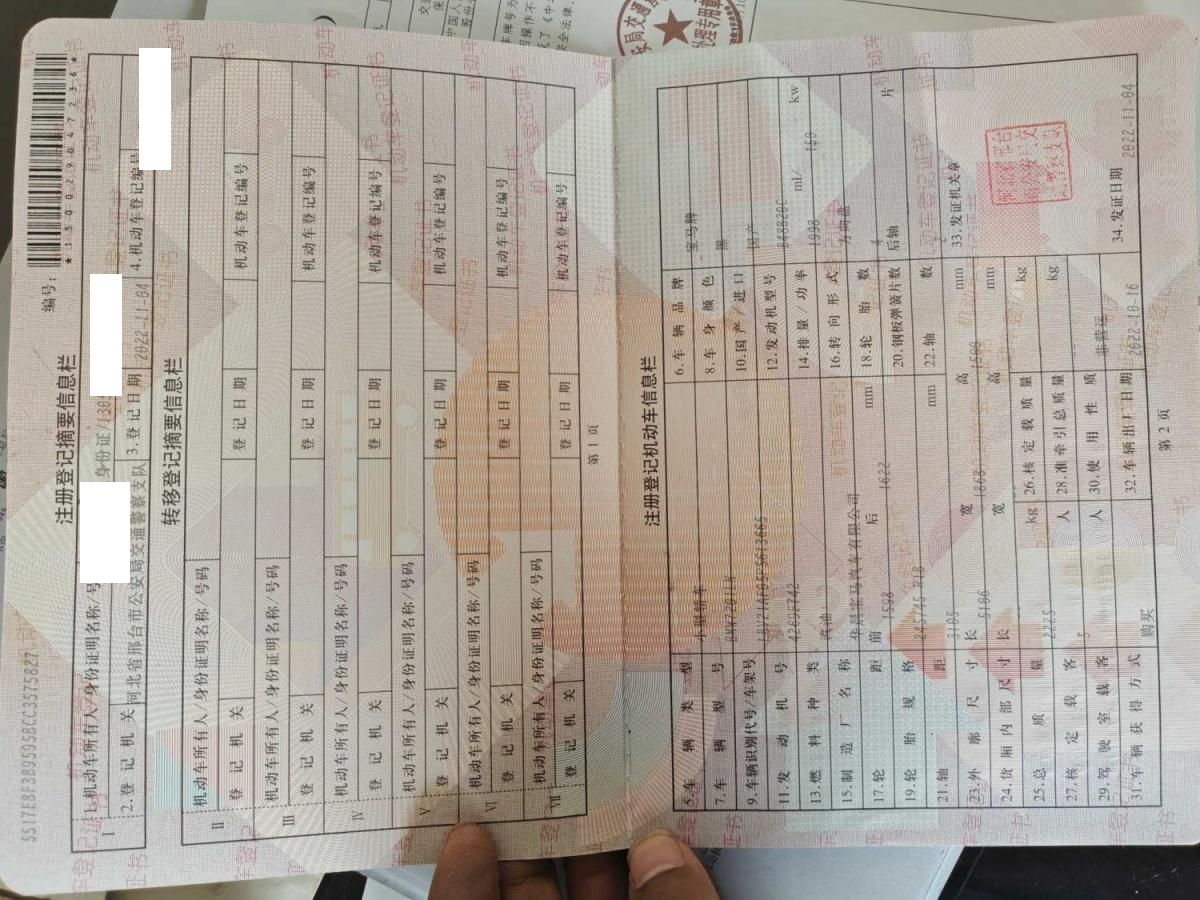 5517E8F3B9595BCC3575827
编号:
*130029047236*
注册登记摘要信息栏
Ⅰ
1.机动车所有人/身份证明名称/号码
身份证/130
2.登记机关
河北省邢台市公安局交通警察支队
3.登记日期
2022-11-04
4.机动车登记编号
转移登记摘要信息栏
Ⅱ
机动车所有人/身份证明名称/号码
登记机关
登记日期
机动车登记编号
Ⅲ
机动车所有人/身份证明名称/号码
登记机关
登记日期
机动车登记编号
Ⅳ
机动车所有人/身份证明名称/号码
登记机关
登记日期
机动车登记编号
Ⅴ
机动车所有人/身份证明名称/号码
登记机关
登记日期
机动车登记编号
Ⅵ
机动车所有人/身份证明名称/号码
登记机关
登记日期
机动车登记编号
Ⅶ
机动车所有人/身份证明名称/号码
登记机关
登记日期
机动车登记编号
第1页
注册登记机动车信息栏
5.车辆类型 小型轿车
6.车辆品牌 宝马牌
7.车辆型号
8.车身颜色 黑
9.车辆识别代号/车架号
10.国产/进口 国产
11.发动机号
12.发动机型号 B48B20C
13.燃料种类 汽油
14.排量/功率 1998 ml/ 150 kw
15.制造厂名称 华晨宝马汽车有限公司
16.转向形式 方向盘
17.轮距 前 1598 后 1622 mm
18.轮胎数 4
19.轮胎规格 245/45 R18
20.钢板弹簧片数 后轴 片
21.轴距 3105 mm
22.轴数 2
23.外廓尺寸 长 5106 宽 1868 高 1500 mm
33.发证机关章
24.货厢内部尺寸 长 宽 高 mm
25.总质量 2225 kg
26.核定载质量 kg
27.核定载客 5 人
28.准牵引总质量 kg
29.驾驶室载客 人
30.使用性质 非营运
31.车辆获得方式 购买
32.车辆出厂日期 2022-10-16
34.发证日期 2022-11-04
第2页